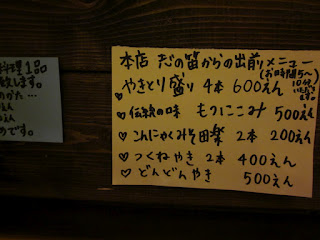 料理1品
致します。
のかた…
えん
えん
めです。
本店 の笛からの出前メニュー
(お時間5〜
やきとり盛り 4本 600えん
♡伝統の味 もつにこみ 500えん
♡こんにゃくみそ田楽 2本 200えん
♡つくねやき 2本 400えん
♡どんどんやき 500えん